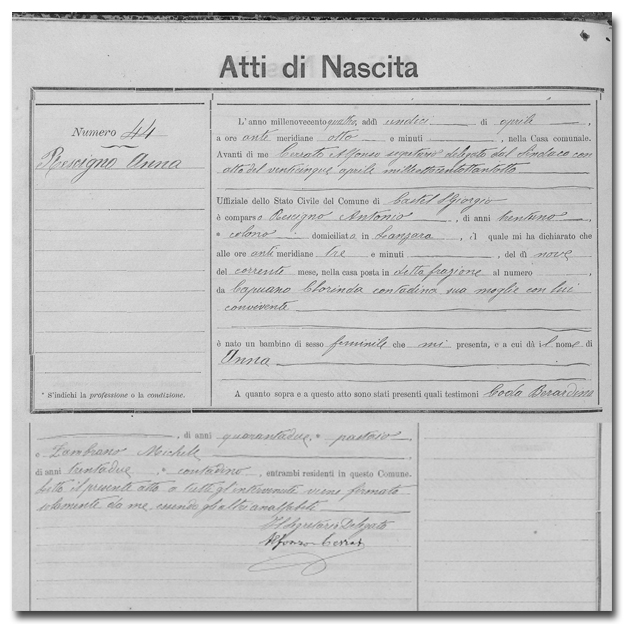 Atti di Nascita
Numero 44
Rescigno Anna
* S'indichi la professione o la condizione.
L'anno millenovecento quattro, addì undici di aprile,
a ore anti meridiane otto e minuti , nella Casa comunale.
Avanti di me Cerrato Alfonso segretario delegato dal Sindaco con
atto del venticinque aprile milleottocentottantotto
Uffiziale dello Stato Civile del Comune di Castel S Giorgio
è comparso Rescigno Antonio, di anni trentuno,
* colono domiciliato in Lanzara, il quale mi ha dichiarato che
alle ore anti meridiane tre e minuti , del dì nove
del corrente mese, nella casa posta in detta frazione al numero ,
da Capuano Clorinda contadina sua moglie con lui
convivente
è nato un bambino di sesso feminile che mi presenta, e a cui dà il nome di
Anna
A quanto sopra e a questo atto sono stati presenti quali testimoni Coda Berardino
, di anni quarantadue, * pastaio
e Zambrano Michele
di anni trentadue * contadino, entrambi residenti in questo Comune.
Letto il presente atto a tutti gl'intervenuti viene firmato
solamente da me, essendo gli altri analfabeti
Il Segretario Delegato
Alfonso Cerrato